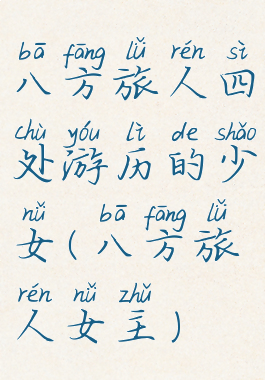 bā fāng lǚ rén sì
八方旅人四
chù yóu lì de shǎo
处游历的少
nǚ bā fāng lǚ
女(八方旅
rén nǚ zhǔ
人女主)